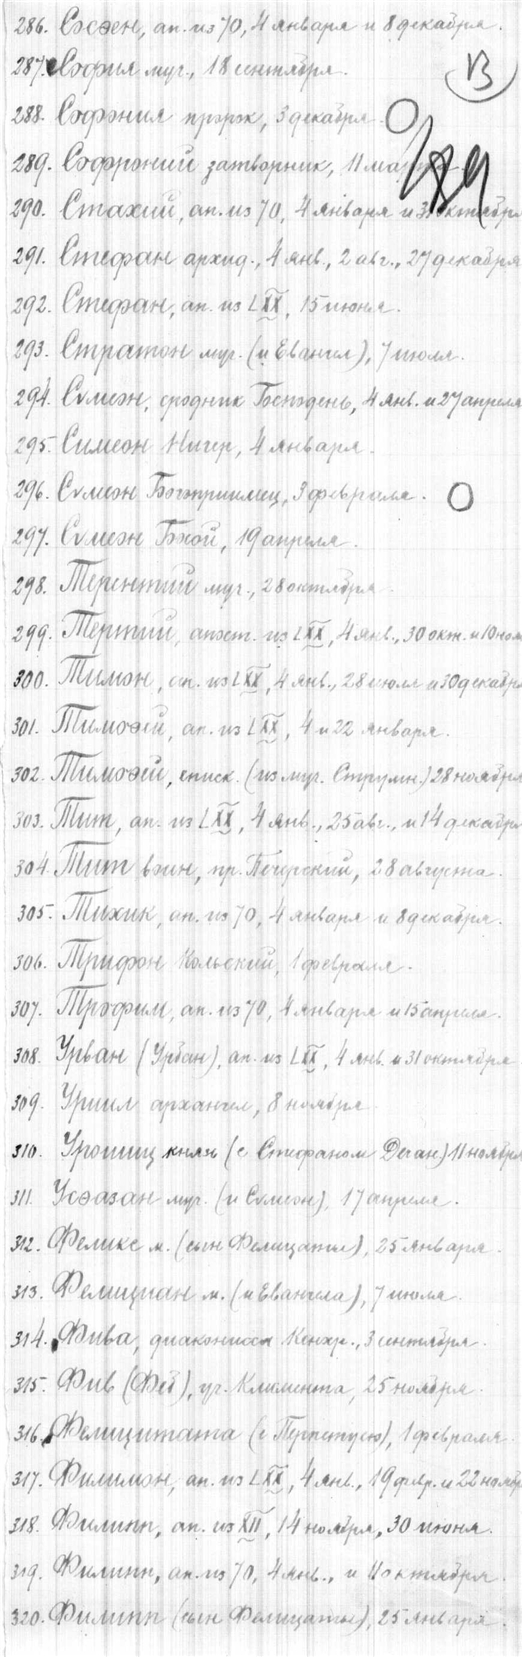 286. Сосфен, ап. из 70, 4 января и 8 декабря.
287. София муч., 18 сентября.
В
288. Софония пророк, 3 декабря
289. Софроний затворник, 11 марта
290. Стахий, ап. из 70, 4 января и 31 октября
291. Стефан архид., 4 янв., 2 авг., 27 декабря
292. Стефан, ап. из LXX, 15 июня.
293. Стратон муч. (и Евангел), 7 июля.
294. Сѵмеон, сродник Господень, 4 янв. и 27 апреля
295. Симеон Нигер, 4 января.
296. Сѵмеон Богоприимец, 3 февраля.
297. Сѵмеон Бхой, 19 апреля.
298. Терентий муч., 28 октября.
299. Тертий, апост. из LXX, 4 янв., 30 окт. и 10 ноя
300. Тимон, ап. из LXX, 4 янв., 28 июля и 30 декабря
301. Тимофей, ап. из LXX, 4 и 22 января.
302. Тимофей, еписк. (из муч. Струмн.) 28 ноября
303. Тит, ап. из LXX, 4 янв., 25 авг., и 14 декабря
304. Тит воин, пр. Печерский, 28 августа.
305. Тихик, ап. из 70, 4 января и 8 декабря.
306. Трифон Кольский, 1 февраля.
307. Трофим, ап. из 70, 4 января и 15 апреля.
308. Урван (Урбан), ап. из LXX, 4 янв. и 31 октября
309. Уриил архангел, 8 ноября
310. Урошиц князь (с Стефаном Дечан) 11 ноября
311. Усфазан муч. (и Сѵмеон), 17 апреля.
312. Феликс м. (сын Фелицаты), 25 января.
313. Фелициан м. (и Евангела), 7 июля.
314. Фива, диаконисса Кенхр., 3 сентября.
315. Фив (Феб), уч. Климента, 25 ноября.
316. Фелицитата (с Перпетуею), 1 февраля.
317. Филимон, ап. из LXX, 4 янв., 19 февр. и 22 ноябр
318. Филипп, ап. из XII, 14 ноября, 30 июня.
319. Филипп, ап. из 70, 4 янв., и 11 октября.
320. Филипп (сын Фелицаты), 25 января.